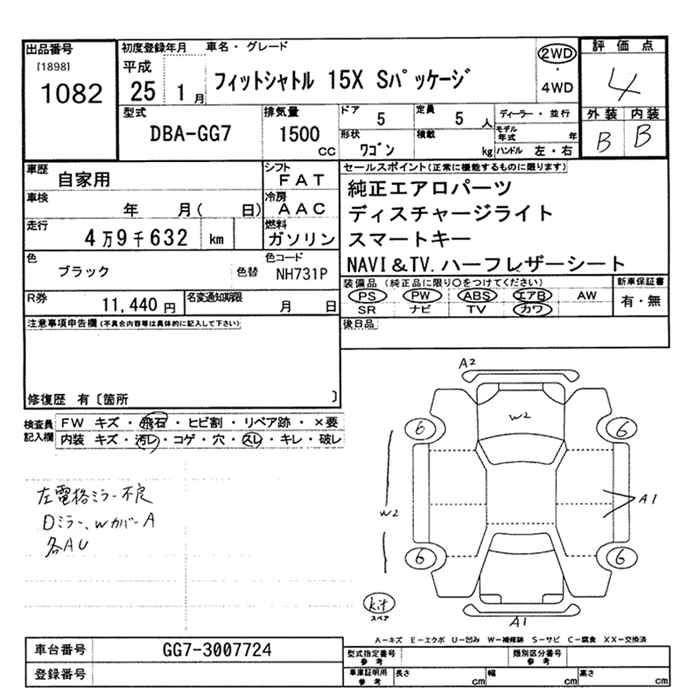 出品番号
[1898]
1082
初度登録年月 車名・グレード
平成
25 1月
フィットシャトル 15X Sパッケージ
2WD
・
4WD
評価点
4
外装 内装
B B
型式
DBA-GG7
排気量
1500
CC
ドア
5
定員
5人
ディーラー・並行
モデル年式 年
形状
ワゴン
積載
kg
ハンドル 左・右
車歴
自家用
シフト
FAT
車検
年 月( 日)
冷房
AAC
走行
4万9千632 km
燃料
ガソリン
色
ブラック
色替
色コード
NH731P
R券
11,440円
名変通知期限
月 日
セールスポイント(正常に機能するものに限ります)
純正エアロパーツ
ディスチャージライト
スマートキー
NAVI&TV.ハーフレザーシート
装備品(純正品に限り○をつけてください)
PS PW ABS エアB AW
SR ナビ TV カワ
新車保証書
有・無
後日品
注意事項申告欄(不具合内容等は具体的に記入して下さい)
修復歴 有〔箇所 〕
検査員
記入欄
FW キズ・飛石・ヒビ割・リペア跡・×要
内装 キズ・汚レ・コゲ・穴・スレ・キレ・破レ
左電格ミラー不良
Dミラー、Wカバー A
各AU
A2
W2
6
6
W2
A1
6
6
kit
スペア
A1
A―キズ E―エクボ U―凹み W―補修跡 S―サビ C―腐食 XX―交換済
車台番号 GG7-3007724
登録番号
型式指定番号
参考
類別区分番号
参考
車庫証明用
参考
長さ cm 幅 cm 高さ cm